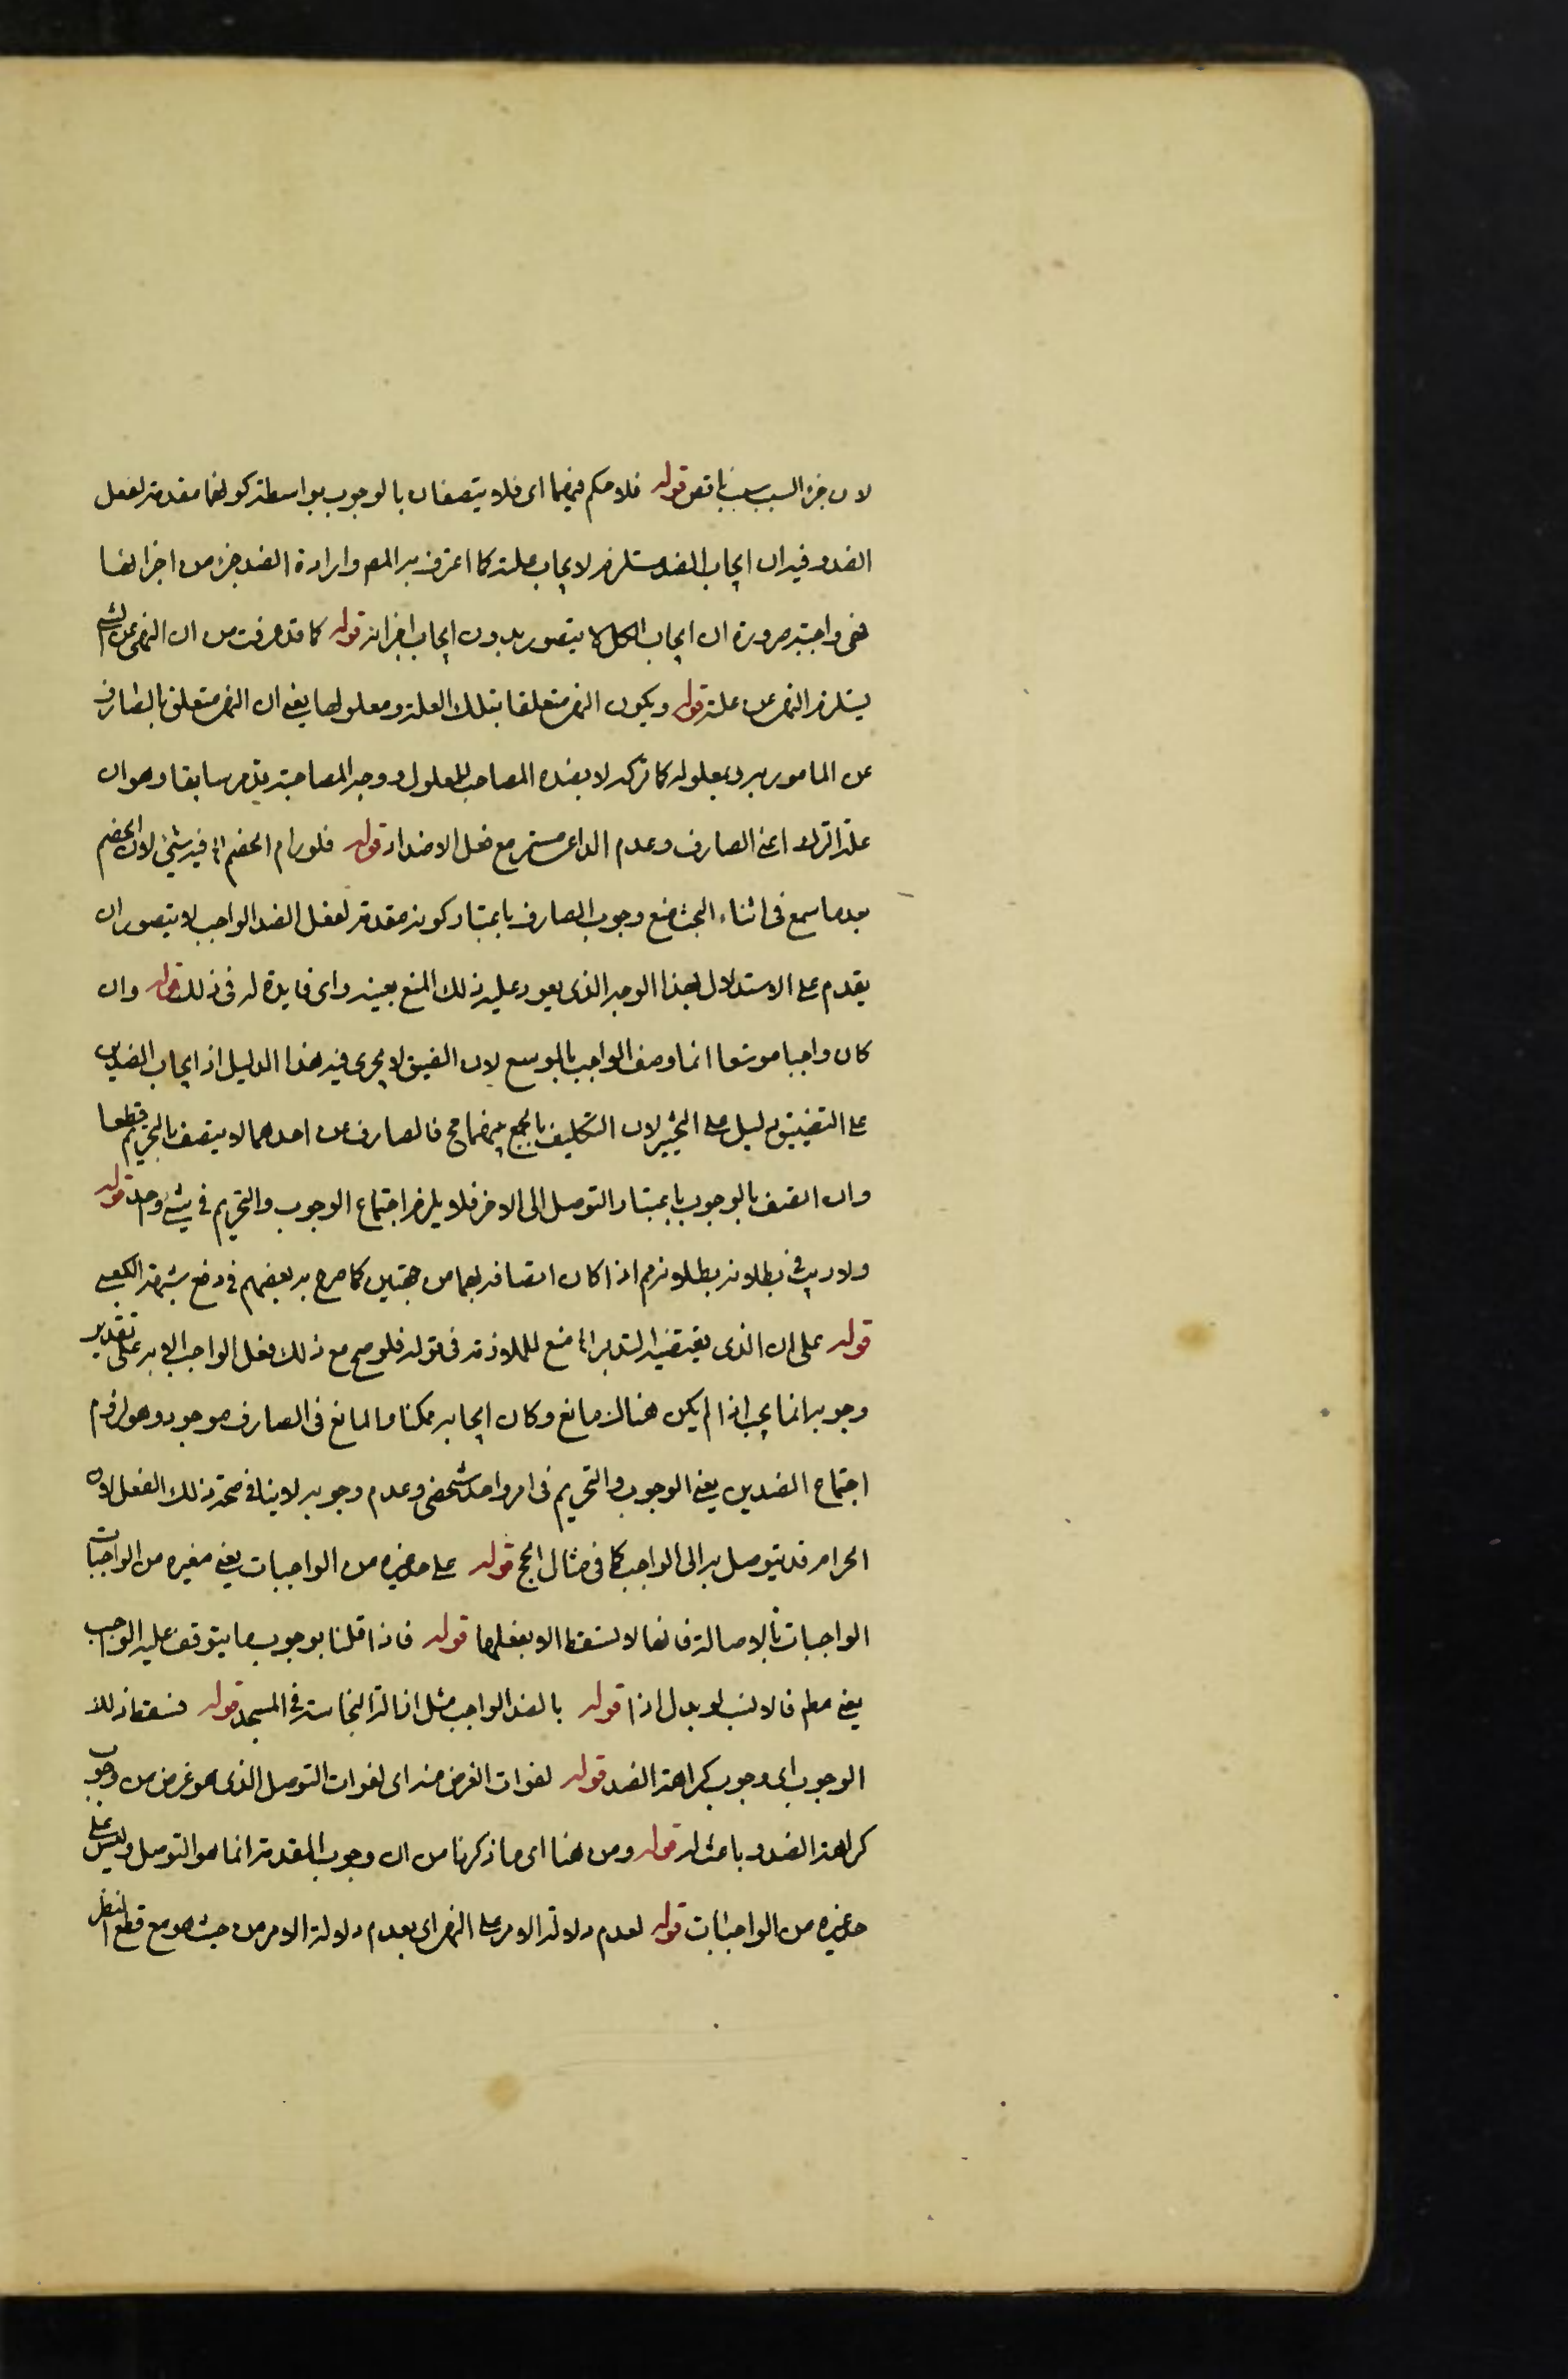 لان جزء السبب سبب ناقص قوله فلا حكم فيهما اى فلا يتصفان بالوجوب بواسطة كونهما مقدمة لفعل
الضد وفيه ان ايجاب الضد مستلزم لايجاب علته كما اعترف به المصـ وارادة الضد جزء من اجزائها
فهى واجبة ضرورة ان ايجاب الكل لا يتصور بدون ايجاب اجزائه قوله كما قد عرفت من ان النهى عن الشئ
يستلزم النهى عن علته قوله ويكون النهى متعلقا بتلك العلة ومعلولها يعنى ان النهى متعلق بالصارف
عن المامور به وبمعلوله كالترك لا بضده المصاحب للمعلول ووجه المصاحبة قد مر سابقا وهو ان
علة الترك اعنى الصارف وعدم الداعى مستمر مع فعل الاضداد قوله فلو رام الخصم اه فيه شئ لان الخصم
بعد ما سمع فى اثناء البحث منع وجوب الصارف باعتبار كونه مقدمة لفعل الضد الواجب لا يتصور ان
يقدم على الاستدلال بهذا الوجه الذى يعود عليه ذلك المنع بعينه واى فايدة له فى ذلك قوله وان
كان واجبا موسعا انما وصف الواجب بالموسع لان الضيق لا يجرى فيه هذا الدليل اذ ايجاب الضدين
على التضييق ليس على التخيير لان التكليف بالجمع بينهما مح فالصارف عن احدهما لا يتصف بالتحريم قطعا
وان اتصف بالوجوب باعتبار التوصل الى الاخر فلا يلزم اجتماع الوجوب والتحريم فى شئ واحد قوله
ولا ريب فى بطلانه بطلانه مم اذا كان اتصافه بهما من جهتين كما صرح به بعضهم فى دفع شبهة الكعبى
قوله على ان الذى يقتضيه التدبر اه منع للملازمة فى قوله فلو صح مع ذلك فعل الواجب الا به على تقدير
وجوبه انما يجب اذا لم يكن هناك مانع وكان ايجابه ممكنا والمانع فى الصارف موجود وهو لزوم
اجتماع الضدين يعنى الوجوب والتحريم فى امر واحد شخصى وعدم وجوبه لا ينافى صحة ذلك الفعل لان
الحرام قد يتوصل به الى الواجب كما فى مثال الحج قوله على حد غيره من الواجبات يعنى بغيره من الواجبات
الواجبات بالاصالة فانها لا تسقط الا بفعلها قوله فاذا قلنا بوجوب ما يتوقف عليه الواجب
يعنى مطم فالانسب لو بدل اذا قوله بالضد الواجب مثل ازالة النجاسة فى المسجد قوله فسقط ذلك
الوجوب اى وجوب كراهة الضد قوله لفوات الغرض منه اى لفوات التوصل الذى هو غرض من وجوب
كراهة الضد وباعث له قوله ومن هنا اى ما ذكرنا من ان وجوب المقدمة انما هو التوصل وليس على
حد غيره من الواجبات قوله لعدم دلالة الامر على النهى اى بعدم دلالة الامر من حيث هو مع قطع النظر